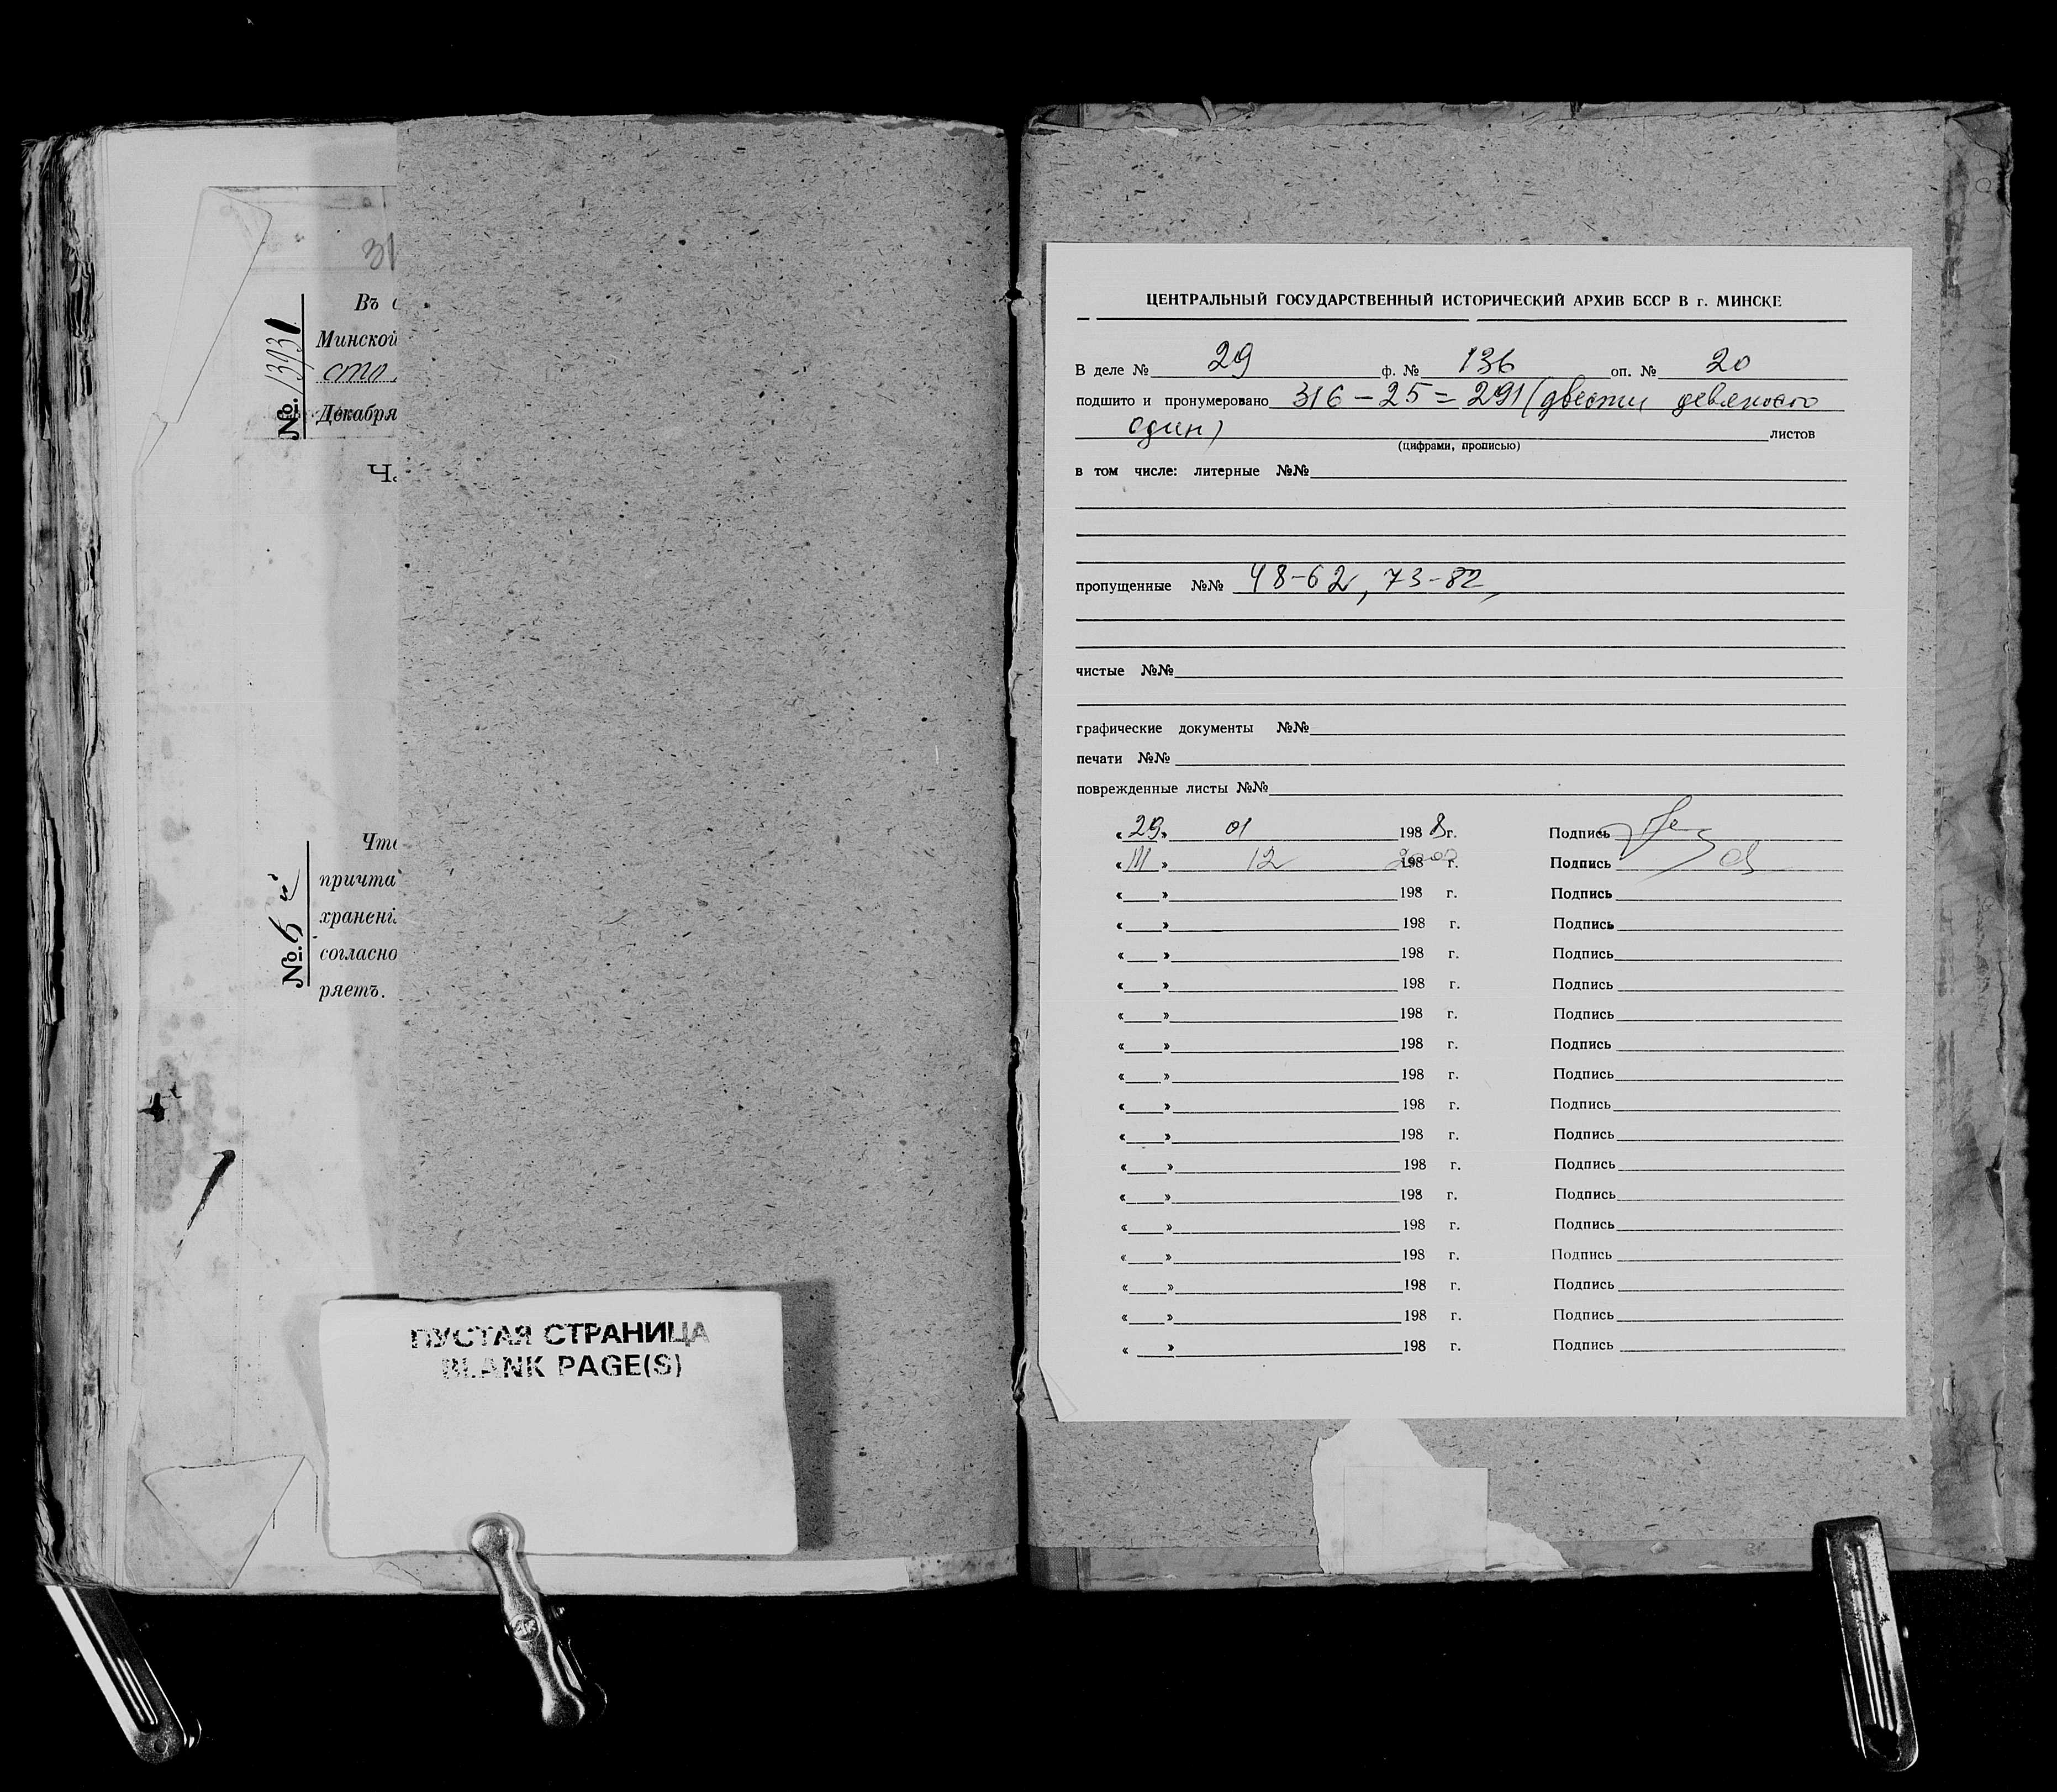 31
Въ
Минской
сто
Декабря
№. 13731
Ч
Что
причта
хранені
согласно
ряетъ.
№. 6
ПУСТАЯ СТРАНИЦА
BLANK PAGE(S)
ЦЕНТРАЛЬНЫЙ ГОСУДАРСТВЕННЫЙ ИСТОРИЧЕСКИЙ АРХИВ БССР В г. МИНСКЕ
В деле № 29 ф. № 136 оп. № 20
подшито и пронумеровано 316 – 25 = 291 (двести девяносто
один) листов
(цифрами, прописью)
в том числе: литерные №№
пропущенные №№ 48-62, 73-82,
чистые №№
графические документы №№
печати №№
поврежденные листы №№
« 29 » 01 198 8 г. Подпись
« » 12 198 г. Подпись
« » 198 г. Подпись
« » 198 г. Подпись
« » 198 г. Подпись
« » 198 г. Подпись
« » 198 г. Подпись
« » 198 г. Подпись
« » 198 г. Подпись
« » 198 г. Подпись
« » 198 г. Подпись
« » 198 г. Подпись
« » 198 г. Подпись
« » 198 г. Подпись
« » 198 г. Подпись
« » 198 г. Подпись
« » 198 г. Подпись
« » 198 г. Подпись